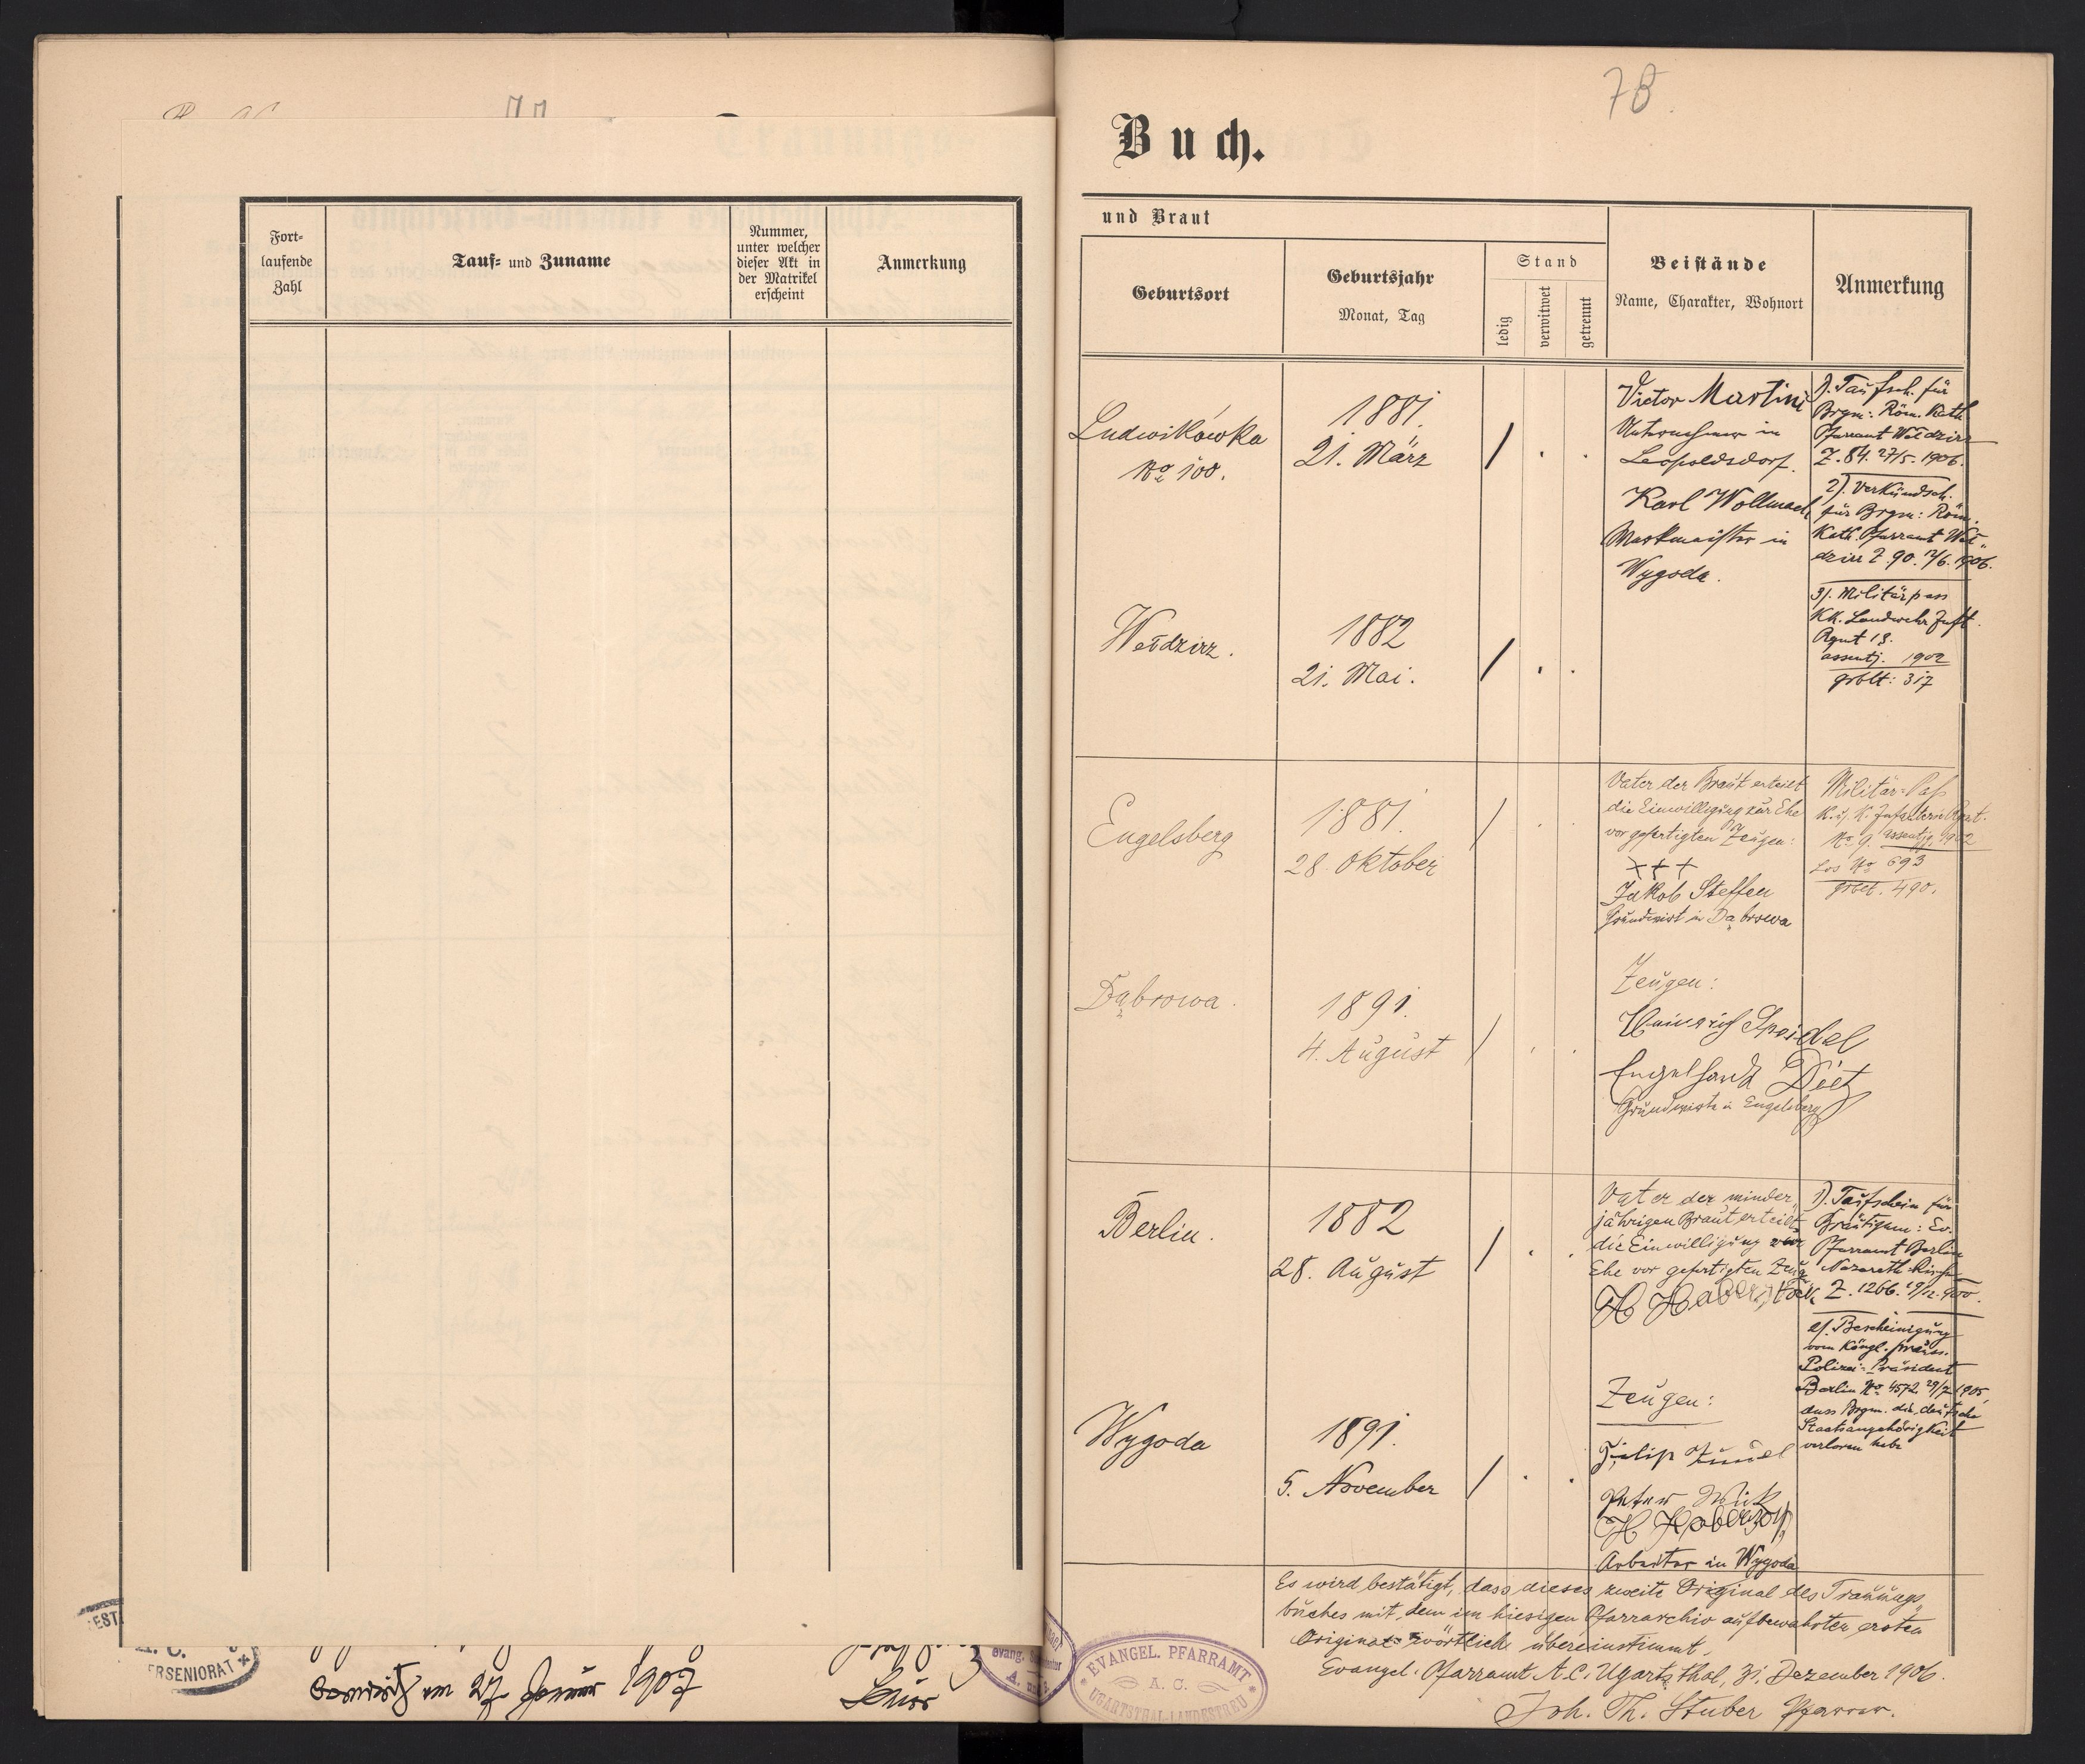 77
Fort-
laufende
Zahl
Tauf- und Zuname
Nummer,
unter welcher
dieser Akt in
der Matrikel
erscheint
Anmerkung
am 27. Januar 1907
ERSENIORAT
A. C.
78.
Buch.
und Braut
Geburtsort
Geburtsjahr
Monat, Tag
Stand
ledig
verwitwet
getrennt
Beistände
Name, Charakter, Wohnort
Anmerkung
Ludwikówka
No 100.
1881.
21. März
Victor Martini
Unternehmer in
Leopoldsdorf.
Karl Wollmach
Werkmeister in
Wygoda.
1). Taufsch. für
Brgm: Röm. Kath
Pfarramt Wełdzirz
Z. 84. 27/5. 1906.
2). Verkündsch.
für Brgm: Röm.
Kath. Pfarramt Weł-
dzirz Z. 90. 7/6. 1906.
3). Militärpass
KK. Landwehr Inft.
Rgmt 18.
assentj. 1902
grblt: 317
Wełdzirz.
1882
21. Mai.
Engelsberg
1881.
28. Oktober
Vater der Braut erteilt
die Einwilligung zur Ehe
vor gefertigten Zeugen:
+++
Jakob Steffen
Grundwirt in Dąbrowa
Militär-Paß
K. u. K. Infanterie Rgmt.
No 9. assentj. 1902
Los No 693
grblt. 490.
Dąbrowa.
1891.
4. August
Zeugen:
Heinrich Speidel
Engelhardt Dietz
Grundwirte in Engelsberg
Berlin.
1882
28. August
Vater der minder-
jährigen Braut erteilt
die Einwilligung zur
Ehe vor gefertigten Zeug
H Haberstock
1). Taufschein für
Bräutigam: Ev.
Pfarramt Berlin
Nazareth-Kirche
Z. 1266. 19/12. 900.
2). Bescheinigung
vom Königl. preuss.
Polizei-Präsident
Berlin No 4572 29/7 1905,
dass Brgm. die deutsche
Staatsangehörigkeit
verloren habe
Wygoda
1891.
5. November
Zeugen:
Filip
Peter
Arbeiter in Wygoda
Es wird bestätigt, dass dieses zweite Original des Trauungs-
buches mit dem im hiesigen Pfarrarchiv aufbewahrten ersten
Original wörtlich übereinstimmt.
Evangel. Pfarramt A.C. Ugartsthal, 31. Dezember 1906.
Joh. Th. Stuber Pfarrer.
EVANGEL. PFARRAMT
A. C.
UGARTSTHAL-LANDESTREU